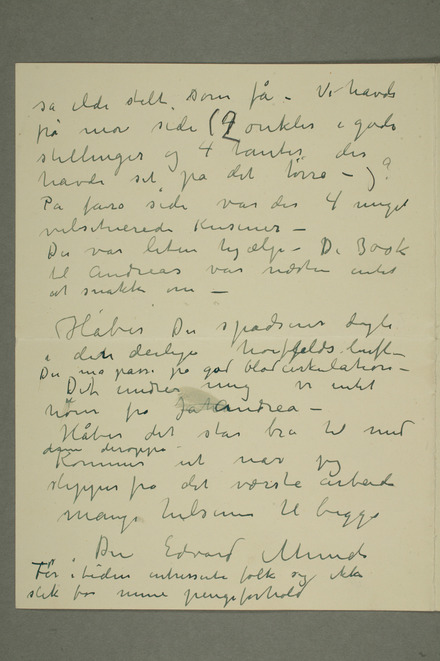 så ilde stelt som få – Vi havde
på mor side (9 onkler i gode
stillinger og 4 tanter der
havde sit på det tørre –)?
På fars side var der 4 meget
velsituerede Kusiner –
Der var liten hjælp – De 300 K
til Andreas var næsten intet
at snakke om –
Håber Du spadserer dygti
i den deilige luft –
Du må passe på god blodcirkulation –
Det undrer mig vi intet
hører fra Andrea –
Håber det står bra til med
deroppe
Kommer ut når jeg
slipper fra det værste arbeide
Mange hilsener til begge
Din Edvard Munch
Før i tiden folk sig ikke
slik for mine pengeforhold